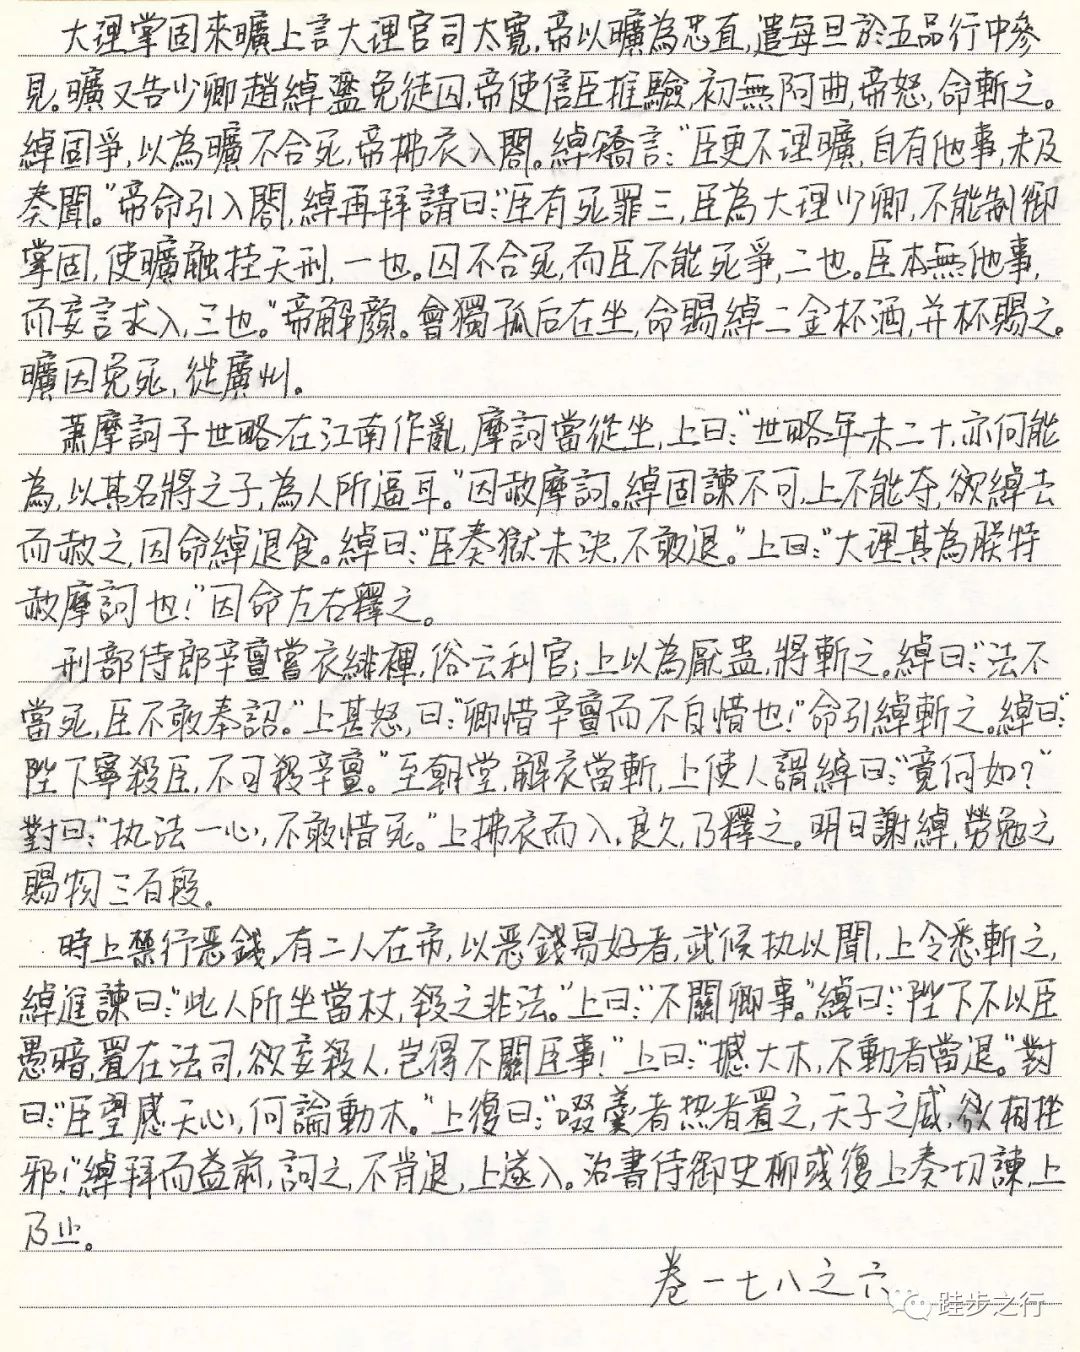 大理掌固來曠上言大理官司太寬,帝以曠為忠直,遣每旦於五品行中參
見。曠又告少卿趙綽濫免徒囚,帝使信臣推驗,初無阿曲,帝怒,命斬之。
綽固爭,以為曠不合死,帝拂衣入閣。綽矯言:"臣更不理曠,自有他事,未及
奏聞。"帝命引入閣,綽再拜請曰:"臣有死罪三,臣為大理少卿,不能制御
掌固,使曠觸挂天刑,一也。囚不合死,而臣不能死爭,二也。臣本無他事,
而妄言求入,三也。"帝解顏。會獨孤后在坐,命賜綽二金杯酒,并杯賜之。
曠因免死,徙廣州。
蕭摩訶子世略在江南作亂,摩訶當從坐,上曰:"世略年未二十,亦何能
為,以其名將之子,為人所逼耳。"因赦摩訶。綽固諫不可,上不能奪,欲綽去
而赦之,因命綽退食。綽曰:"臣奏獄未決,不敢退。"上曰:"大理其為朕特
赦摩訶也!"因命左右釋之。
刑部侍郎辛亶嘗衣緋褌,俗云利官;上以為厭蠱,將斬之。綽曰:"法不
當死,臣不敢奉詔。"上甚怒,曰:"卿惜辛亶而不自惜也!"命引綽斬之。綽曰:"
陛下寧殺臣,不可殺辛亶。"至朝堂,解衣當斬,上使人謂綽曰:"竟何如?"
對曰:"执法一心,不敢惜死。"上拂衣而入,良久,乃釋之。明日謝綽,勞勉之
賜物三百段。
時上禁行恶錢,有二人在市,以恶錢易好者,武候执以聞,上令悉斬之,
綽進諫曰:"此人所坐當杖,殺之非法。"上曰:"不關卿事。"綽曰:"陛下不以臣
愚暗,置在法司,欲妄殺人,岂得不關臣事!"上曰:"撼大木,不動者當退。"對
曰:"臣望感天心,何論動木。"上復曰:"啜羹者热者置之,天子之威,欲相挫
邪!"綽拜而益前,訶之,不肯退,上遂入。治書侍御史柳彧復上奏切諫,上
乃止。
卷一七八之六
跬步之行